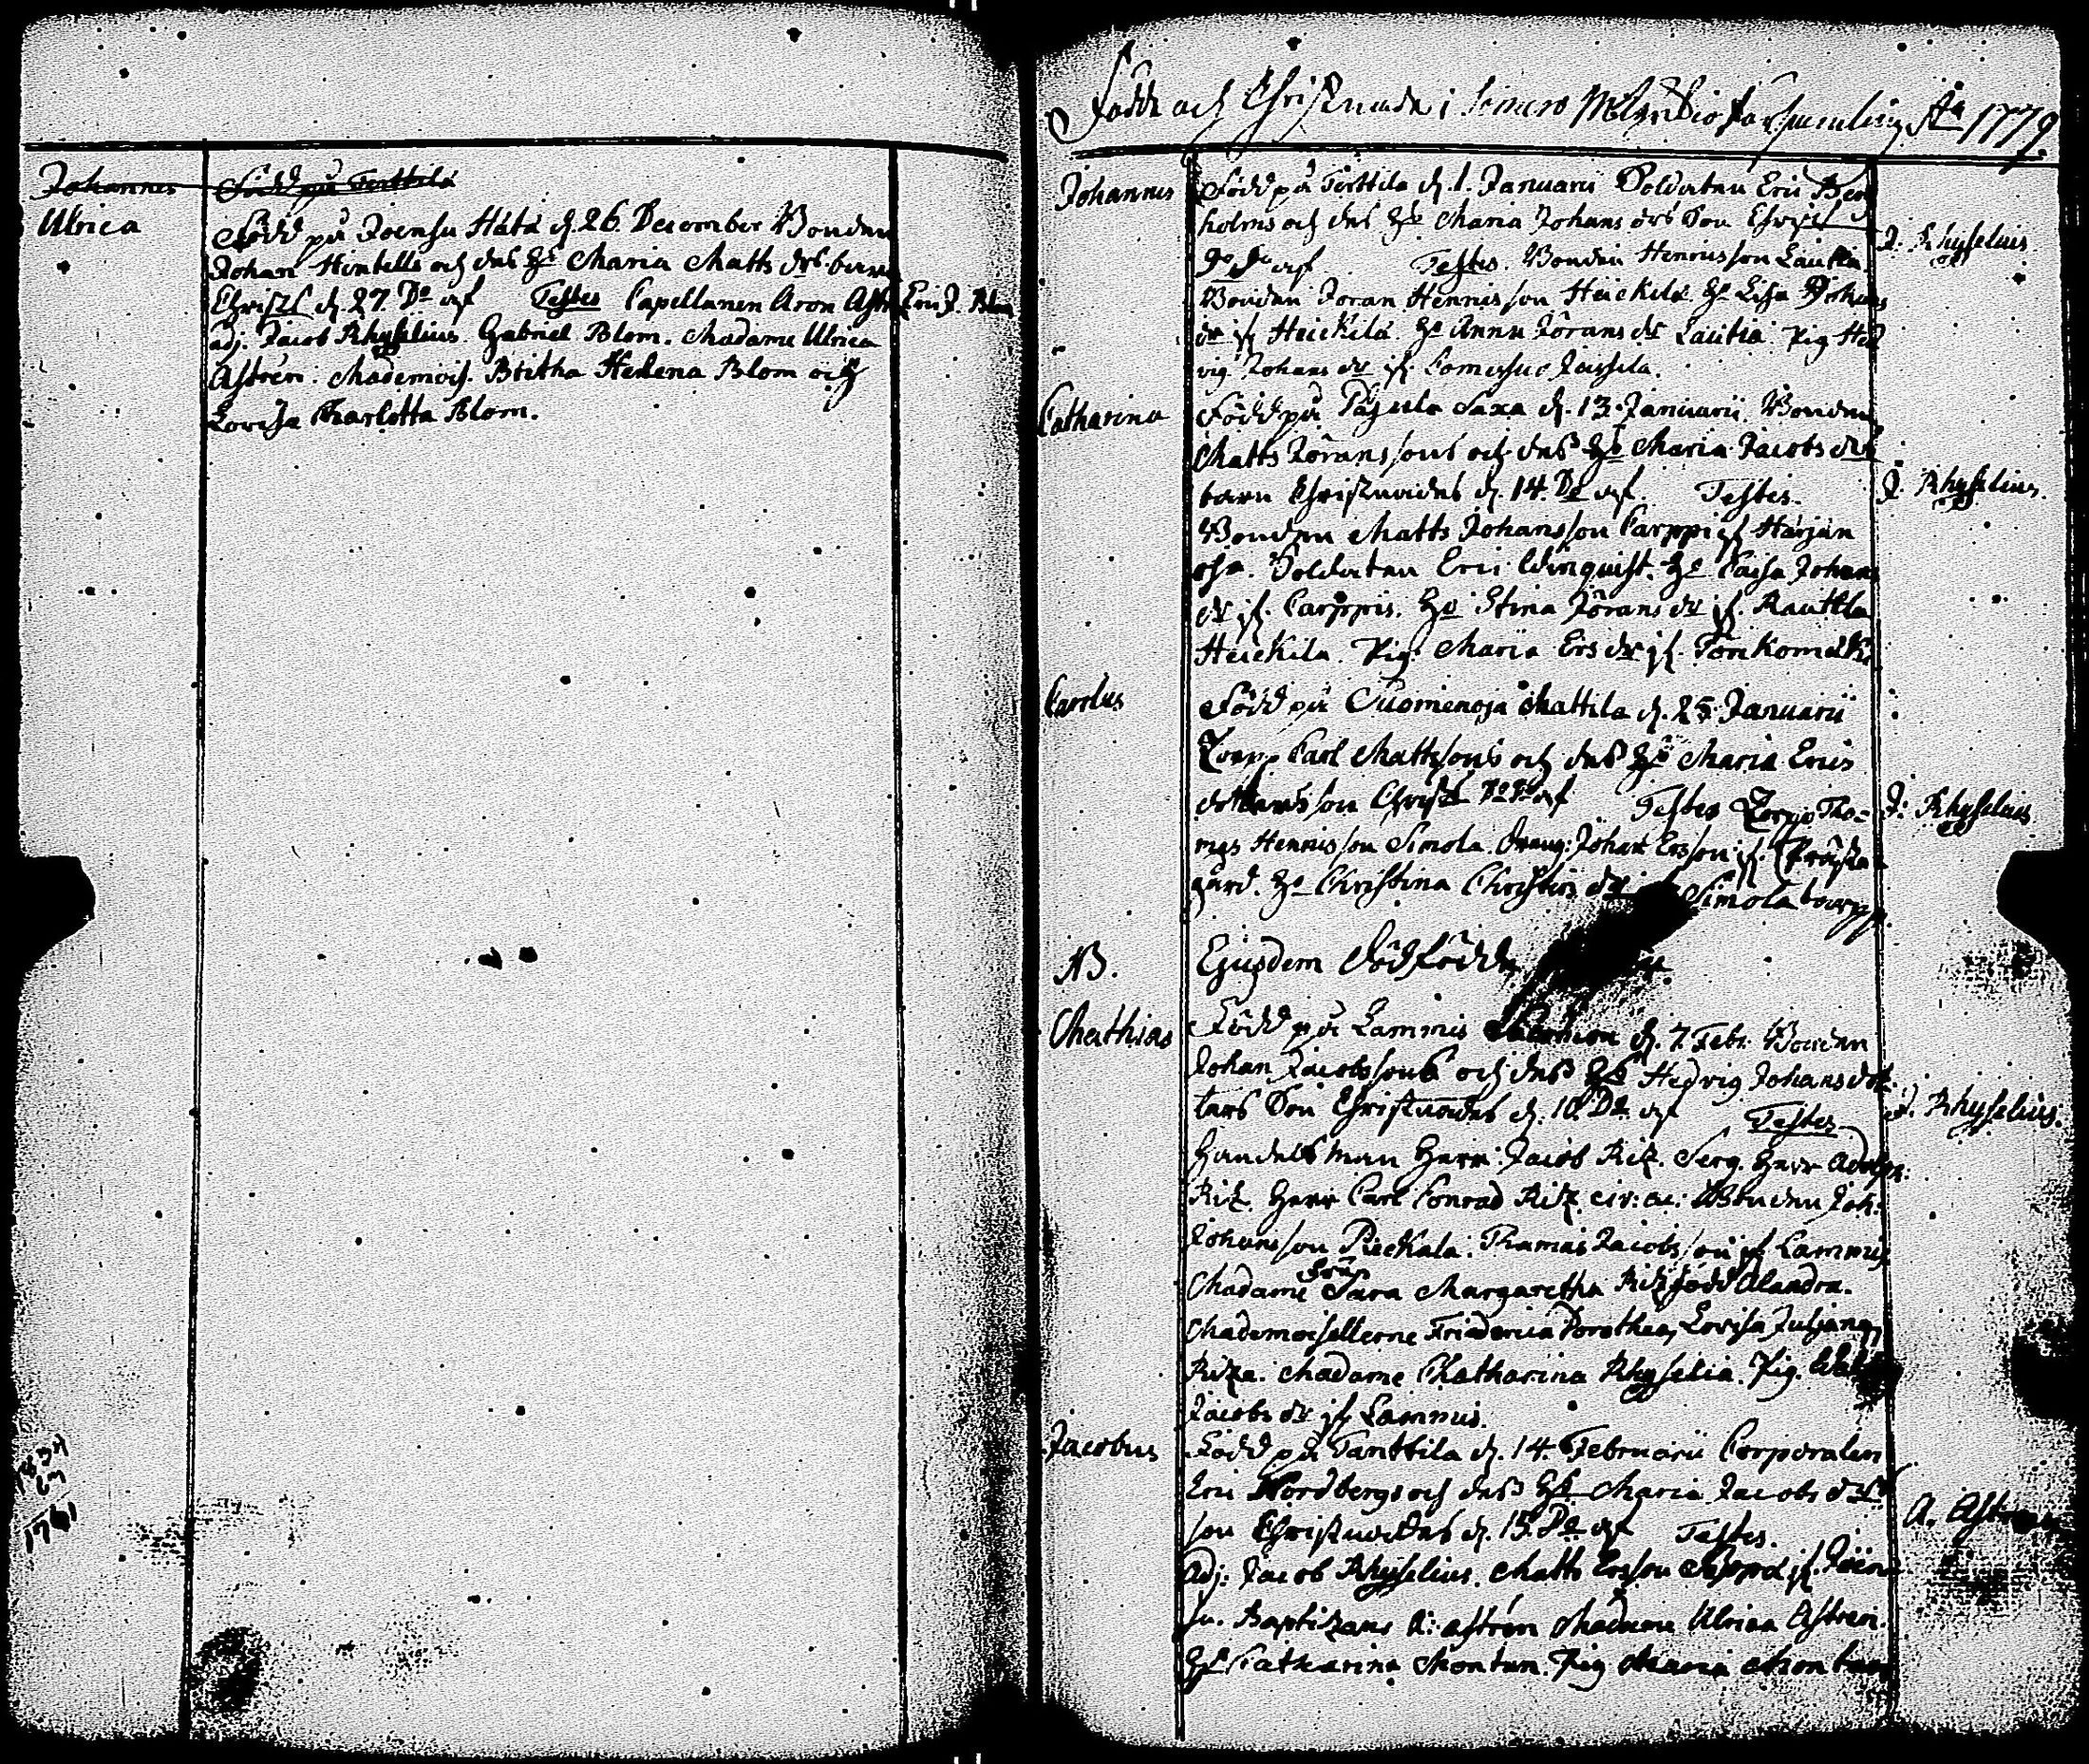 Johannes Född på Terttilä
Ulrica Född på Joensu Hata d. 26. December Bonden
Johan Hintells och dess H. Maria Matts drs barn
Christ. d. 27. Do af Testes Capellanen Aron Astr Eric J. Blom
adj. Jacob Rhyselius. Gabriel Blom. Madame Ulrica
Astrén. Mademois. Britha Helena Blom och
Lovisa Charlotta Blom.
1761
Född och Christnade i församling Åhr 1779.
Johannes Född på Terttilä d. 1. Januarii Soldaten Eric Berg
holms och dess H. Maria Johans drs Son Christ
Do Do af Testes. Bonden Henricsson Lautia J. Rhyselius
Bonden Joran Hennisson Heickilä. H. Lisa Johans
dr if. Heickilä. H. Anna Jörans dr Lautia. Pig. Hed
vig Johans dr if. Jaissila.
Catharina Född på Pägula Saxa d. 13. Januarii Bonden
Matts Joranssons och dess H. Maria Jacobs drs
barn Christnades d. 14. Do af. Testes. J. Rhyselius.
Bonden Matts Johansson Carppi if. Harjan
oja. Soldaten Eric Winquist. H. Caisa Johans
dr if. Carppis. H. Stina Jörans dr if. Rauttla
Heickila. Pig. Maria Ers dr if.
Carolus Född på Cuomenoja Mattila d. 25. Januarii
Torpp. Carl Mattssons och dess H. Maria Erics
dotters son Christ. Do Do af Testes Torpp. Tho- J. Rhyselius
mas Hennisson Simola. Dreng. Johan Ersson if. Präste
gård. H. Christina Christers dr Simola torpp
NB. Ejusdem Dödfödde
Mathias Född på Lammis d. 7. Febr. Bonden
Johan Jacobssons och dess H. Hedvig Johansdot
ters Son Christnades d. 10. Do af Testes J. Rhyselius.
Handels man Herr Jacob Ritz. Serg. Herr Adolph.
Ritz. Herr Carl Conrad Ritz. civ: ac: Bonden Joh.
Johansson Pieckala. Thomas Jacobsson if. Lammis
Madame Fru Sara Margaretha Ritz född Alandra.
Mademoisellerne Friedericia Dorothea, Lovisa Juljana,
Ritza. Madame Chatharina Rhyselia. Pig.
Jacobs dr if. Lammis.
Jacobus Född på Tanttila d. 14. Februarii Corporalen
Eric Nordbergs och dess H. Maria Jacobs drs
son Christnades d. 15. Do af Testes. A. Astren
Adj. Jacob Rhyselius. Matts Ersson Seppä if. Joen
su. Baptizans A. Astrén Madame Ulrica Astren.
H. Catharina Montan. Pig Maria Montan